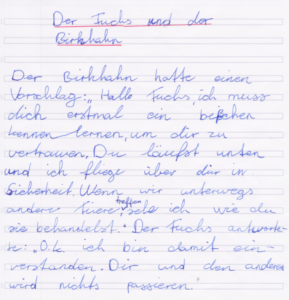 Der Fuchs und der
Birkhahn
Der Birkhahn hatte einen
Vorschlag: „Hallo Fuchs, ich muss
dich erstmal ein bißchen
kennen lernen, um dir zu
vertrauen. Du läufst unten
und ich fliege über dir in
Sicherheit. Wenn wir unterwegs
andere Tiere treffen, sehe ich wie du
sie behandelst." Der Fuchs antworte-
te: „O.k. ich bin damit ein-
verstanden. Dir und den anderen
wird nichts passieren."